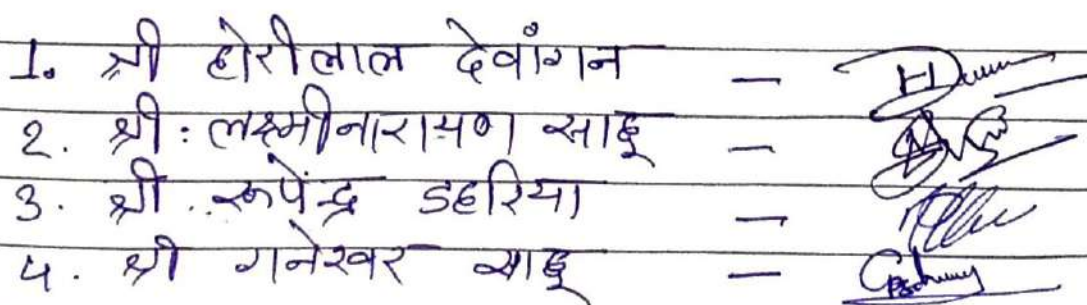 1. श्री होरीलाल देवाँगन —
2. श्री : लक्ष्मीनारायण साहू —
3. श्री .. रूपेंद्र डहरिया —
4. श्री गनेश्वर साहू —